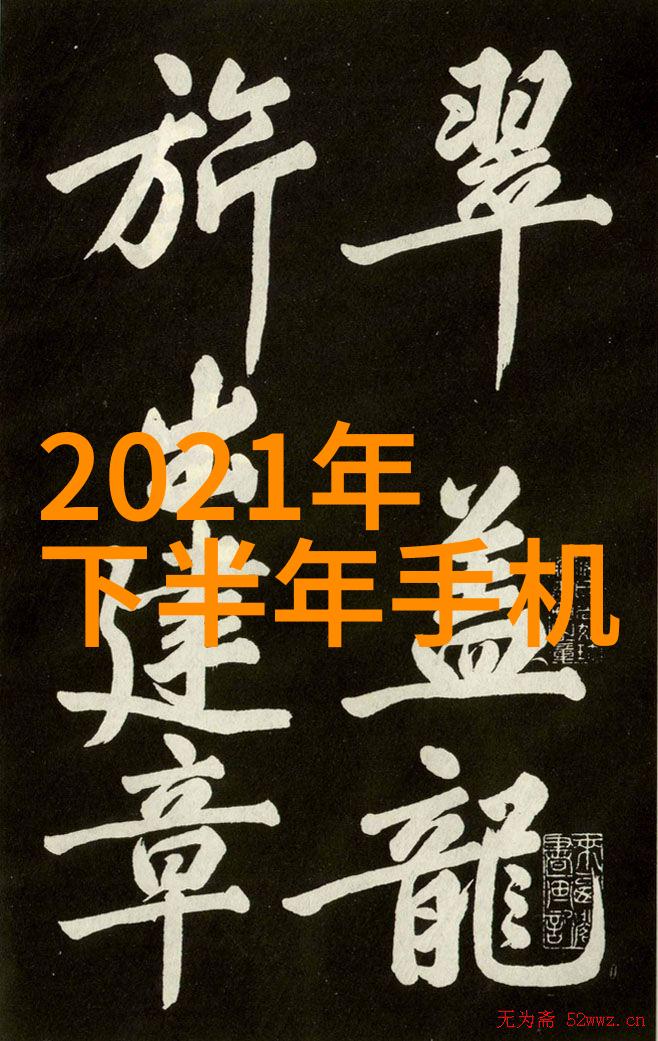 翠盖龍
旂出建章
2021年
下半年手机
无为斋 52wwz.cn